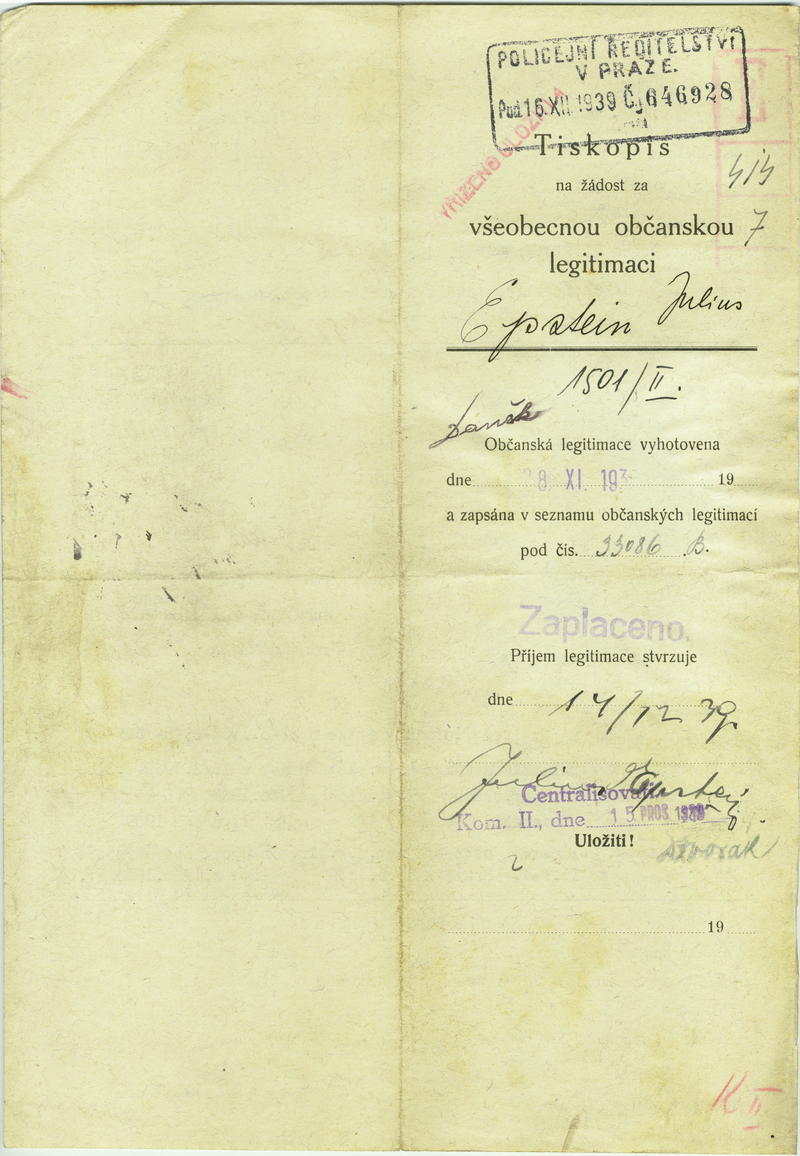 POLICEJNÍ ŘEDITELSTVÍ
V PRAZE.
Pod. 16. XII 1939 Čj 646928
Tiskopis
na žádost za
všeobecnou občanskou 7
legitimaci
Epstein Julius
1501/II.
Občanská legitimace vyhotovena
dne 8 XI. 193 19
a zapsána v seznamu občanských legitimací
pod čís. 33086 B.
Zaplaceno.
Příjem legitimace stvrzuje
dne 14/12 39.
Julius Epstein
Centralisováno
Kom. II., dne 15. PROS. 1939
Uložiti!
Dvorak
19
K II